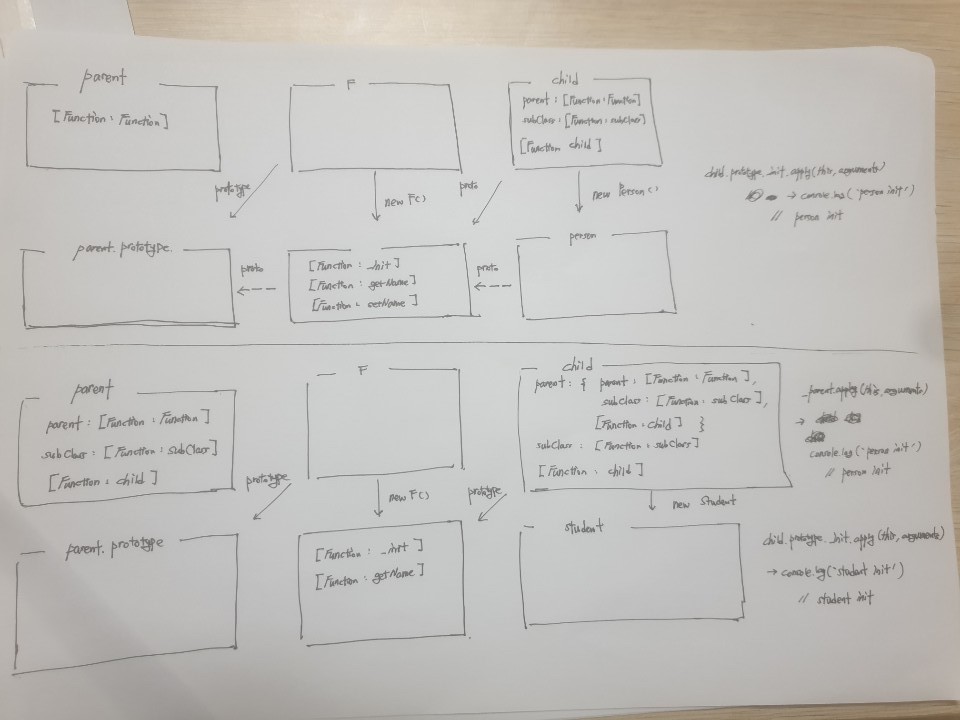 parent
[Function : Function]
F
child
parent : [Function : Function]
subClass : [Function : subClass]
[Function child]
prototype
new F()
proto
new Person()
child.prototype._init.apply(this, arguments)
→ console.log('person init')
// person init
parent.prototype.
proto
[Function : _init]
[Function : getName]
[Function : setName]
proto
person
parent
parent : [Function : Function]
subClass : [Function : subClass]
[Function : child]
F
child
parent : { parent : [Function : Function],
subClass : [Function : subClass],
[Function : child] }
subClass : [Function : subClass]
[Function : child]
_parent.apply(this, arguments)
→
console.log('person init')
// person init
prototype
new F()
prototype
new Student
parent.prototype
[Function : _init]
[Function : getName]
student
child.prototype._init.apply(this, arguments)
→ console.log('student init')
// student init